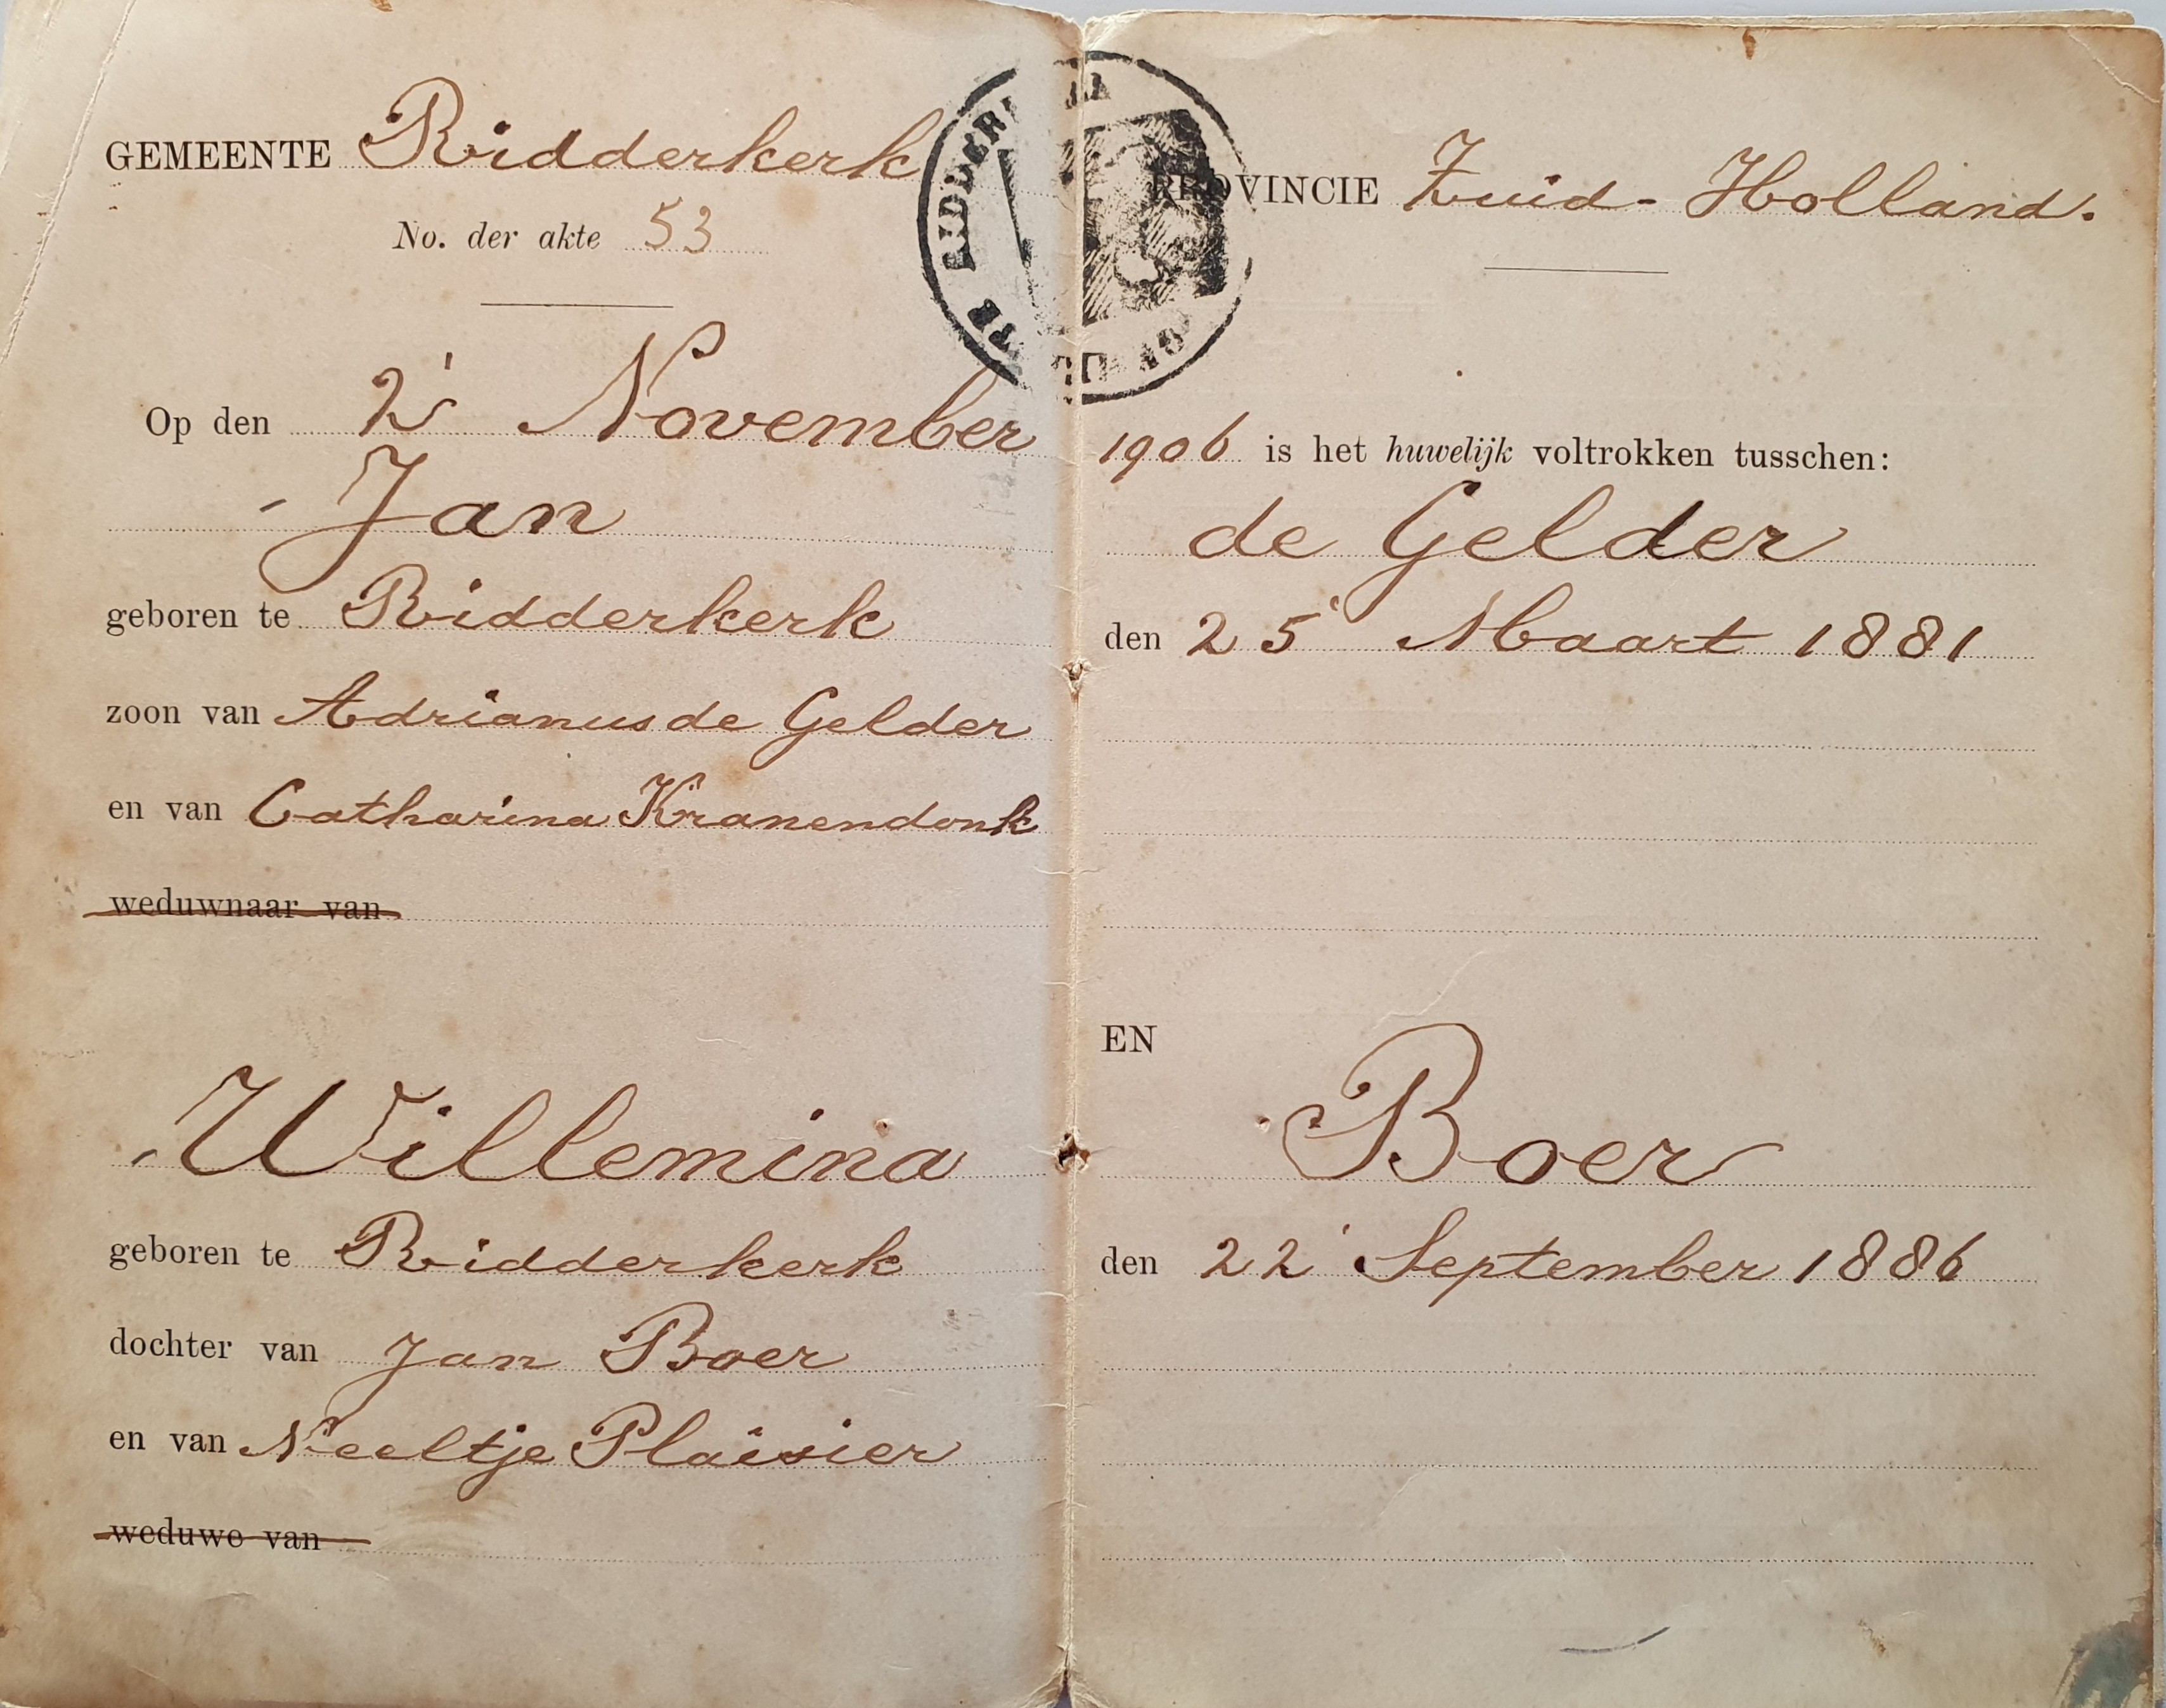 GEMEENTE Ridderkerk
No. der akte 53
PROVINCIE Zuid-Holland.
Op den 2 November 1906 is het huwelijk voltrokken tusschen:
Jan de Gelder
geboren te Ridderkerk den 25 Maart 1881
zoon van Adrianus de Gelder
en van Catharina Kranendonk
weduwnaar van
EN
Willemina Boer
geboren te Ridderkerk den 22 September 1886
dochter van Jan Boer
en van Neeltje Plaisier
weduwe van